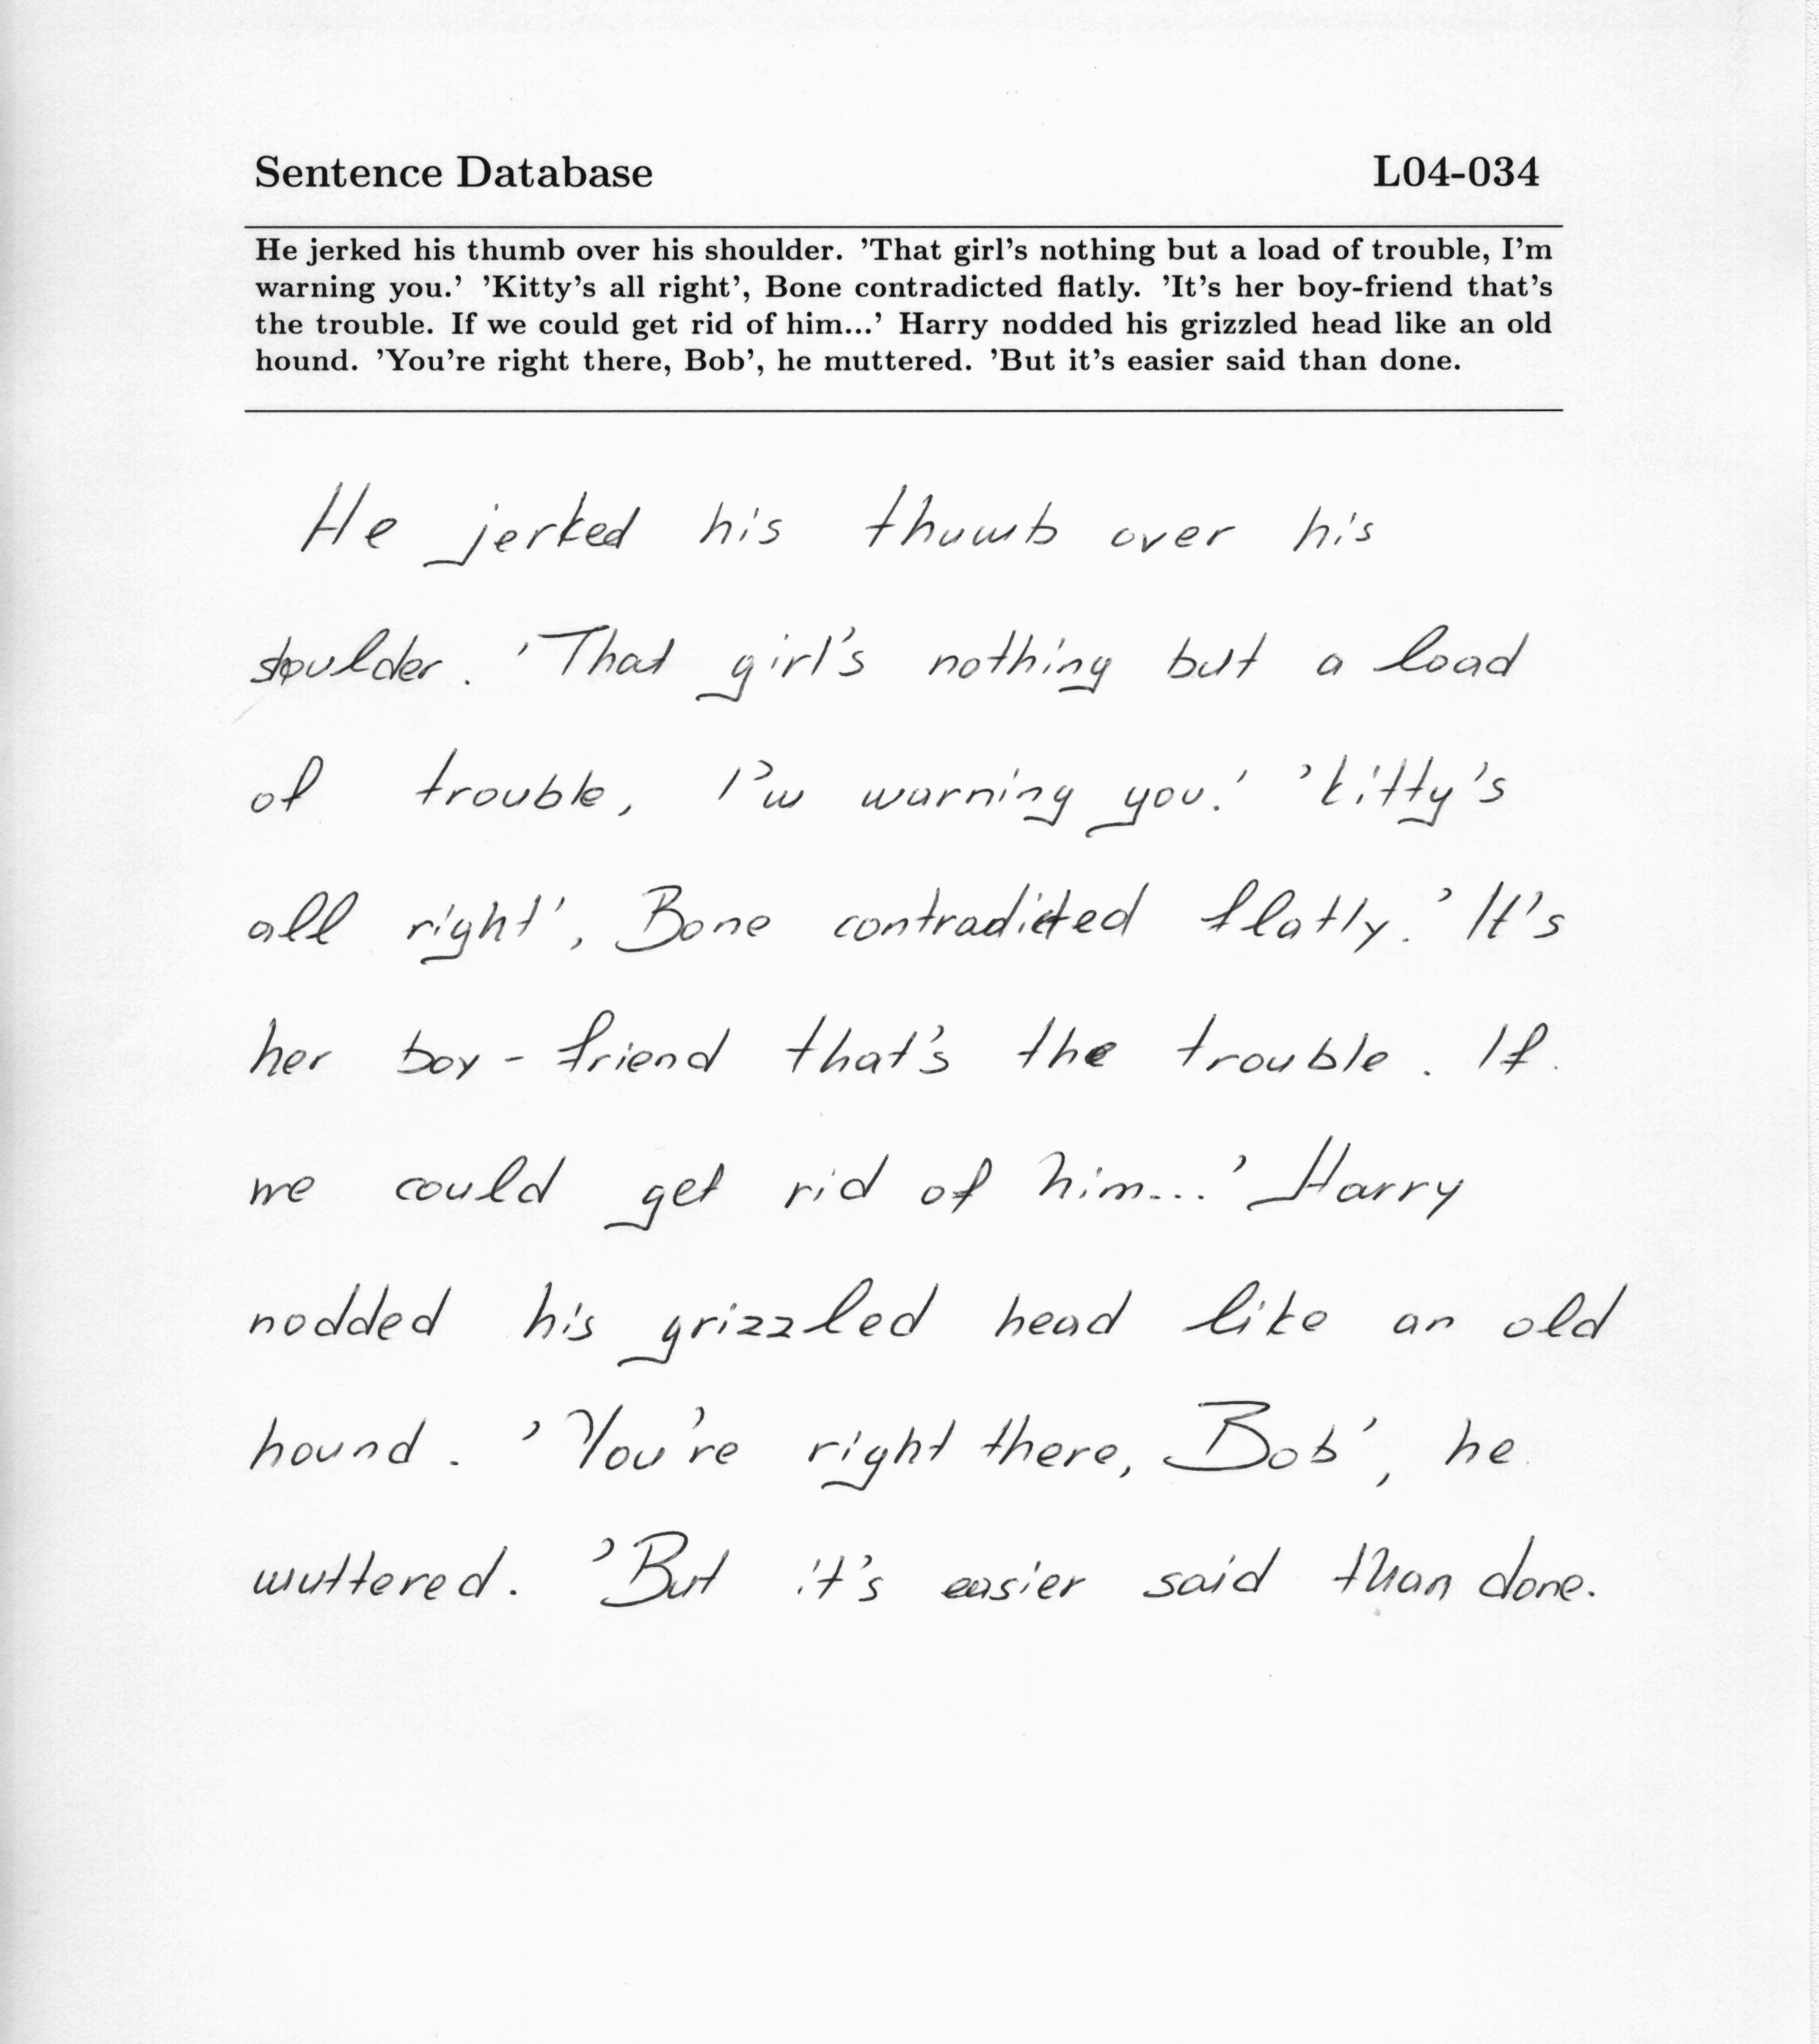 Sentence Database L04-034
He jerked his thumb over his shoulder. 'That girl's nothing but a load of trouble, I'm
warning you.' 'Kitty's all right', Bone contradicted flatly. 'It's her boy-friend that's
the trouble. If we could get rid of him...' Harry nodded his grizzled head like an old
hound. 'You're right there, Bob', he muttered. 'But it's easier said than done.
He jerked his thumb over his
shoulder. 'That girl's nothing but a load
of trouble, I'm warning you.' 'Kitty's
all right', Bone contradicted flatly.' It's
her boy-friend that's the trouble. If
we could get rid of him...' Harry
nodded his grizzled head like an old
hound. 'You're right there, Bob', he
muttered. 'But it's easier said than done.